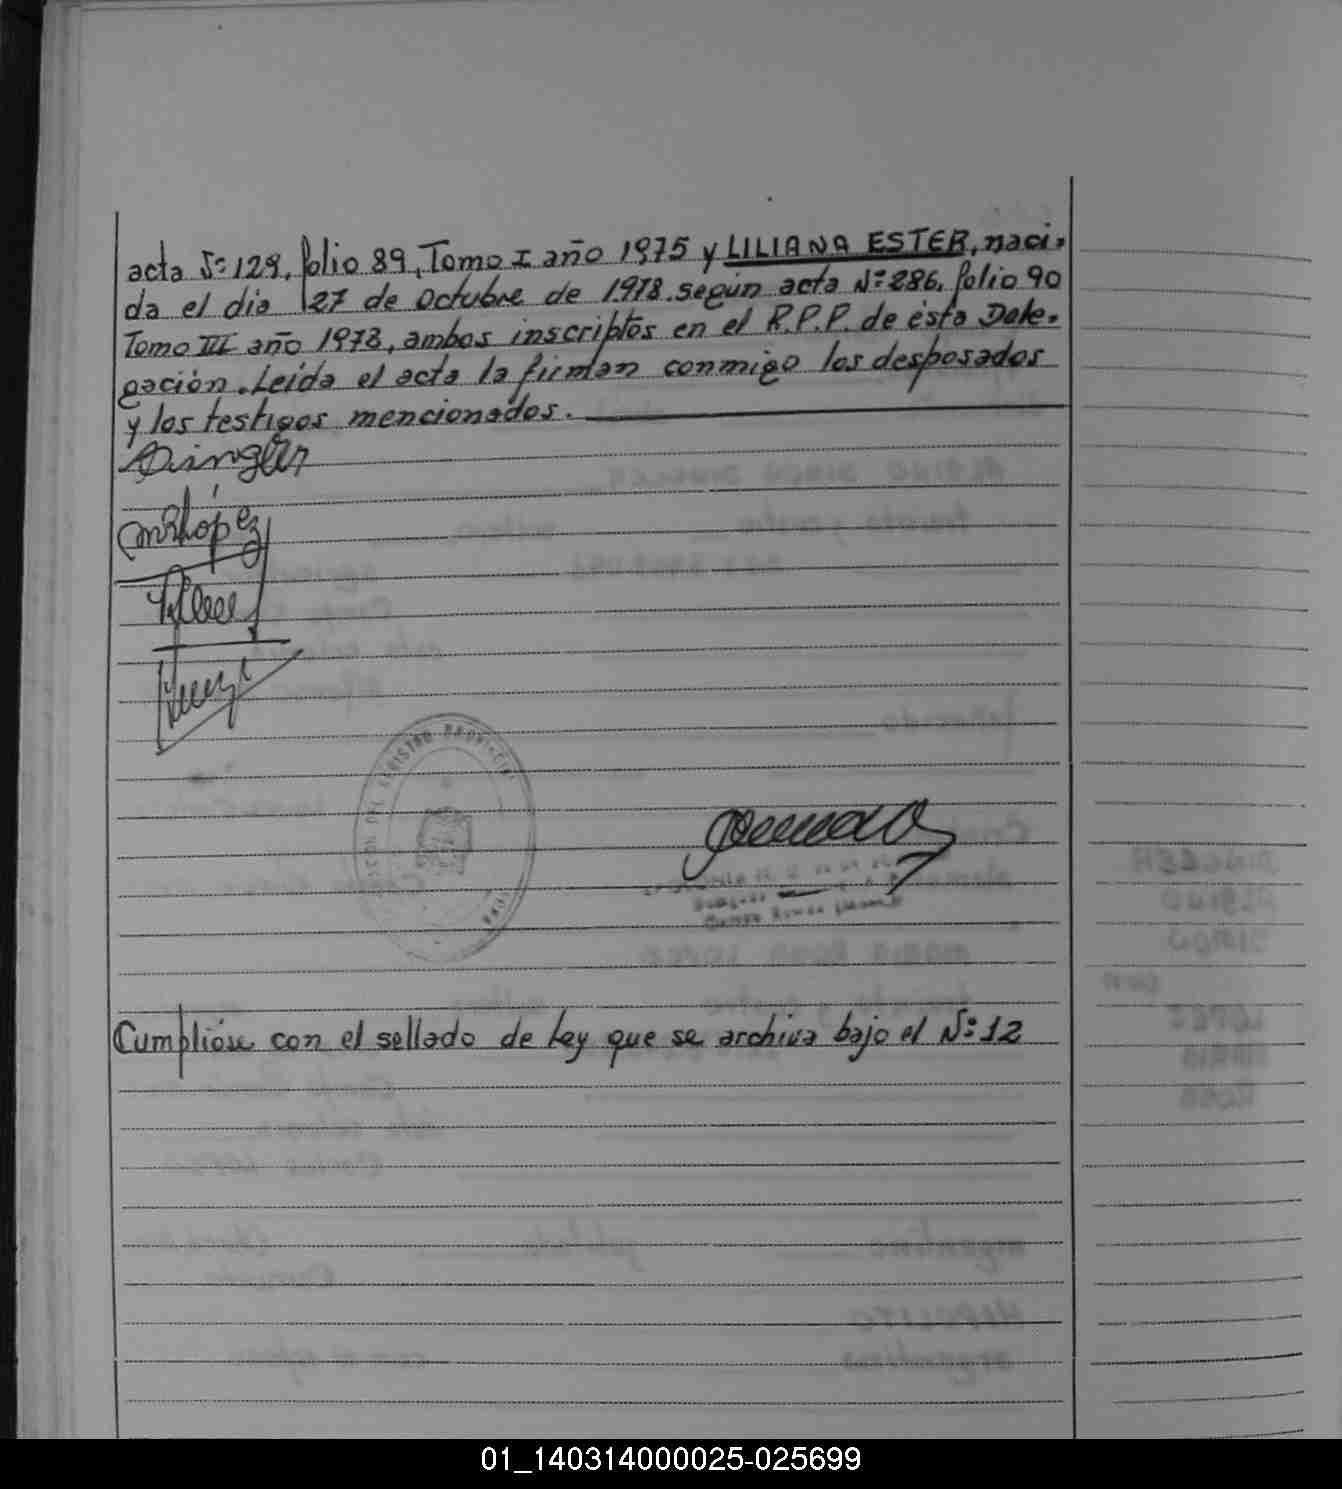 acta Nº 129, folio 89, Tomo I año 1975 y LILIANA ESTER, naci-
da el dia 27 de Octubre de 1978. según acta Nº 286, folio 90
Tomo III año 1978, ambos inscriptos en el R.P.P. de ésta Dele-
gación. Leída el acta la firman conmigo los desposados
y los testigos mencionados.
Dingler
MRLópez
DEL REGISTRO PROVINCIAL
Cumplióse con el sellado de Ley que se archiva bajo el Nº 12
01_140314000025-025699